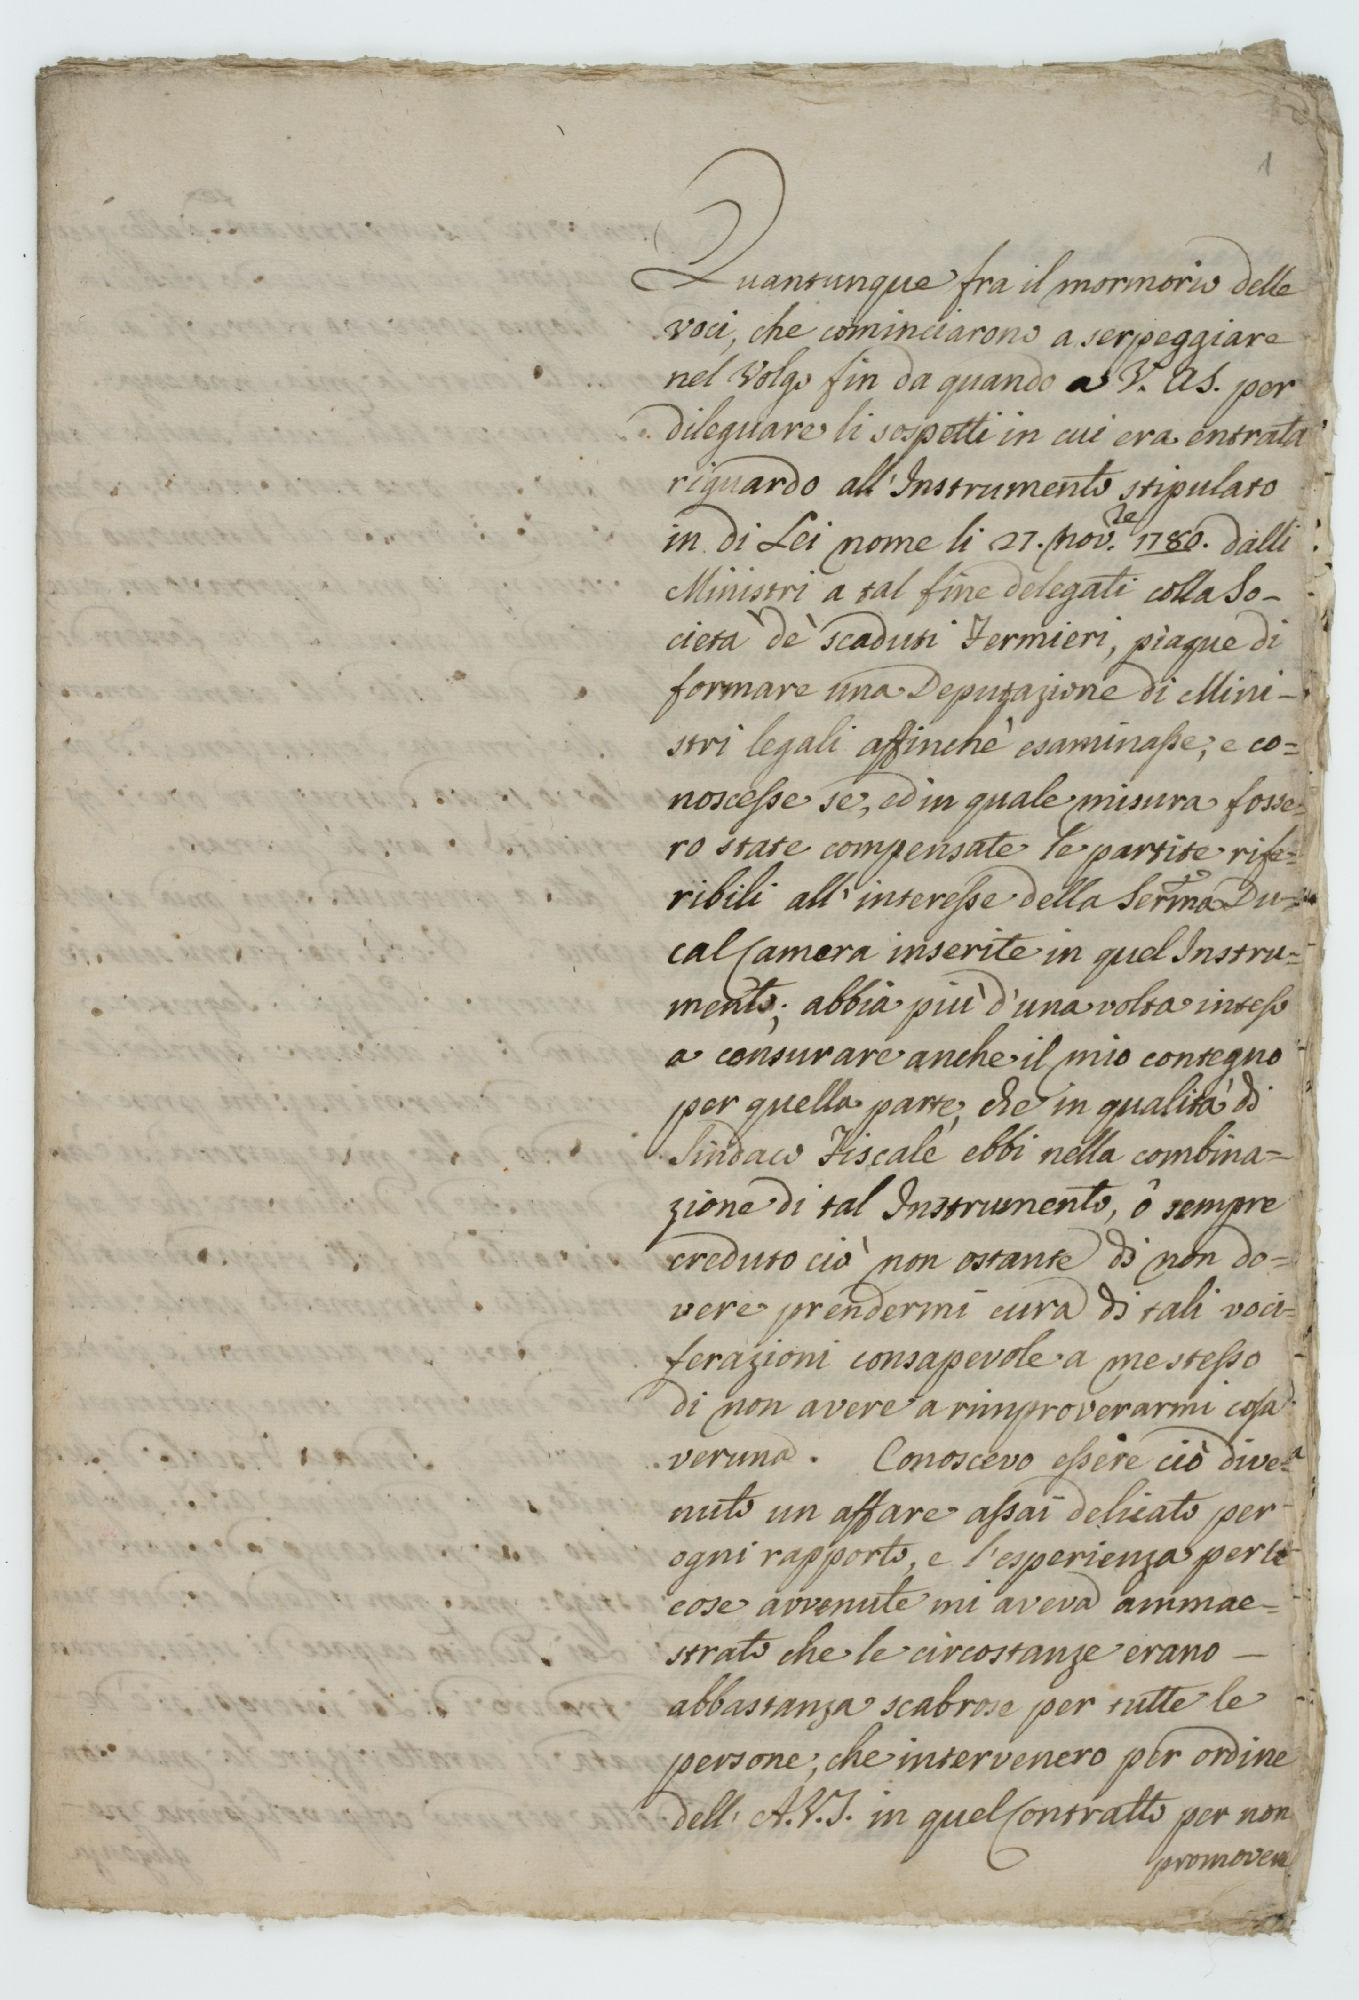 1
Quantunque fra il mormorio delle
voci, che cominciarono a serpeggiare
nel Volgo fin da quando a V. AS. per
dileguare li sospetti in cui era entrata
riguardo all'Instrumento stipulato
in di Lei nome li 27. Nov.le 1780. dalli
Ministri a tal fine delegati colla So-
cietà de' scaduti Fermieri, piaque di
formare una Deputazione di Mini-
stri legali affinchè esaminasse, e co=
noscesse se, ed in quale misura fosse=
ro state compensate le partite rife=
ribili all'interesse della Serma Du=
cal Camera inserite in quel Instru=
mento; abbia più d'una volta inteso
a censurare anche il mio contegno
per quella parte, che in qualità di
Sindaco Fiscale ebbi nella combina=
zione di tal Instrumento, ô sempre
creduto ciò non ostante di non do=
vere prendermi cura di tali voci=
ferazioni consapevole a me stesso
di non avere a rimproverarmi cosa
veruna. Conoscevo essere ciò dive=
nuto un affare assai delicato per
ogni rapporto, e l'esperienza per le
cose avvenute mi aveva ammae=
strato che le circostanze erano —
abbastanza scabrose per tutte le
persone, che intervenero per ordine
dell' A.V.S. in quel Contratto per non
promovere